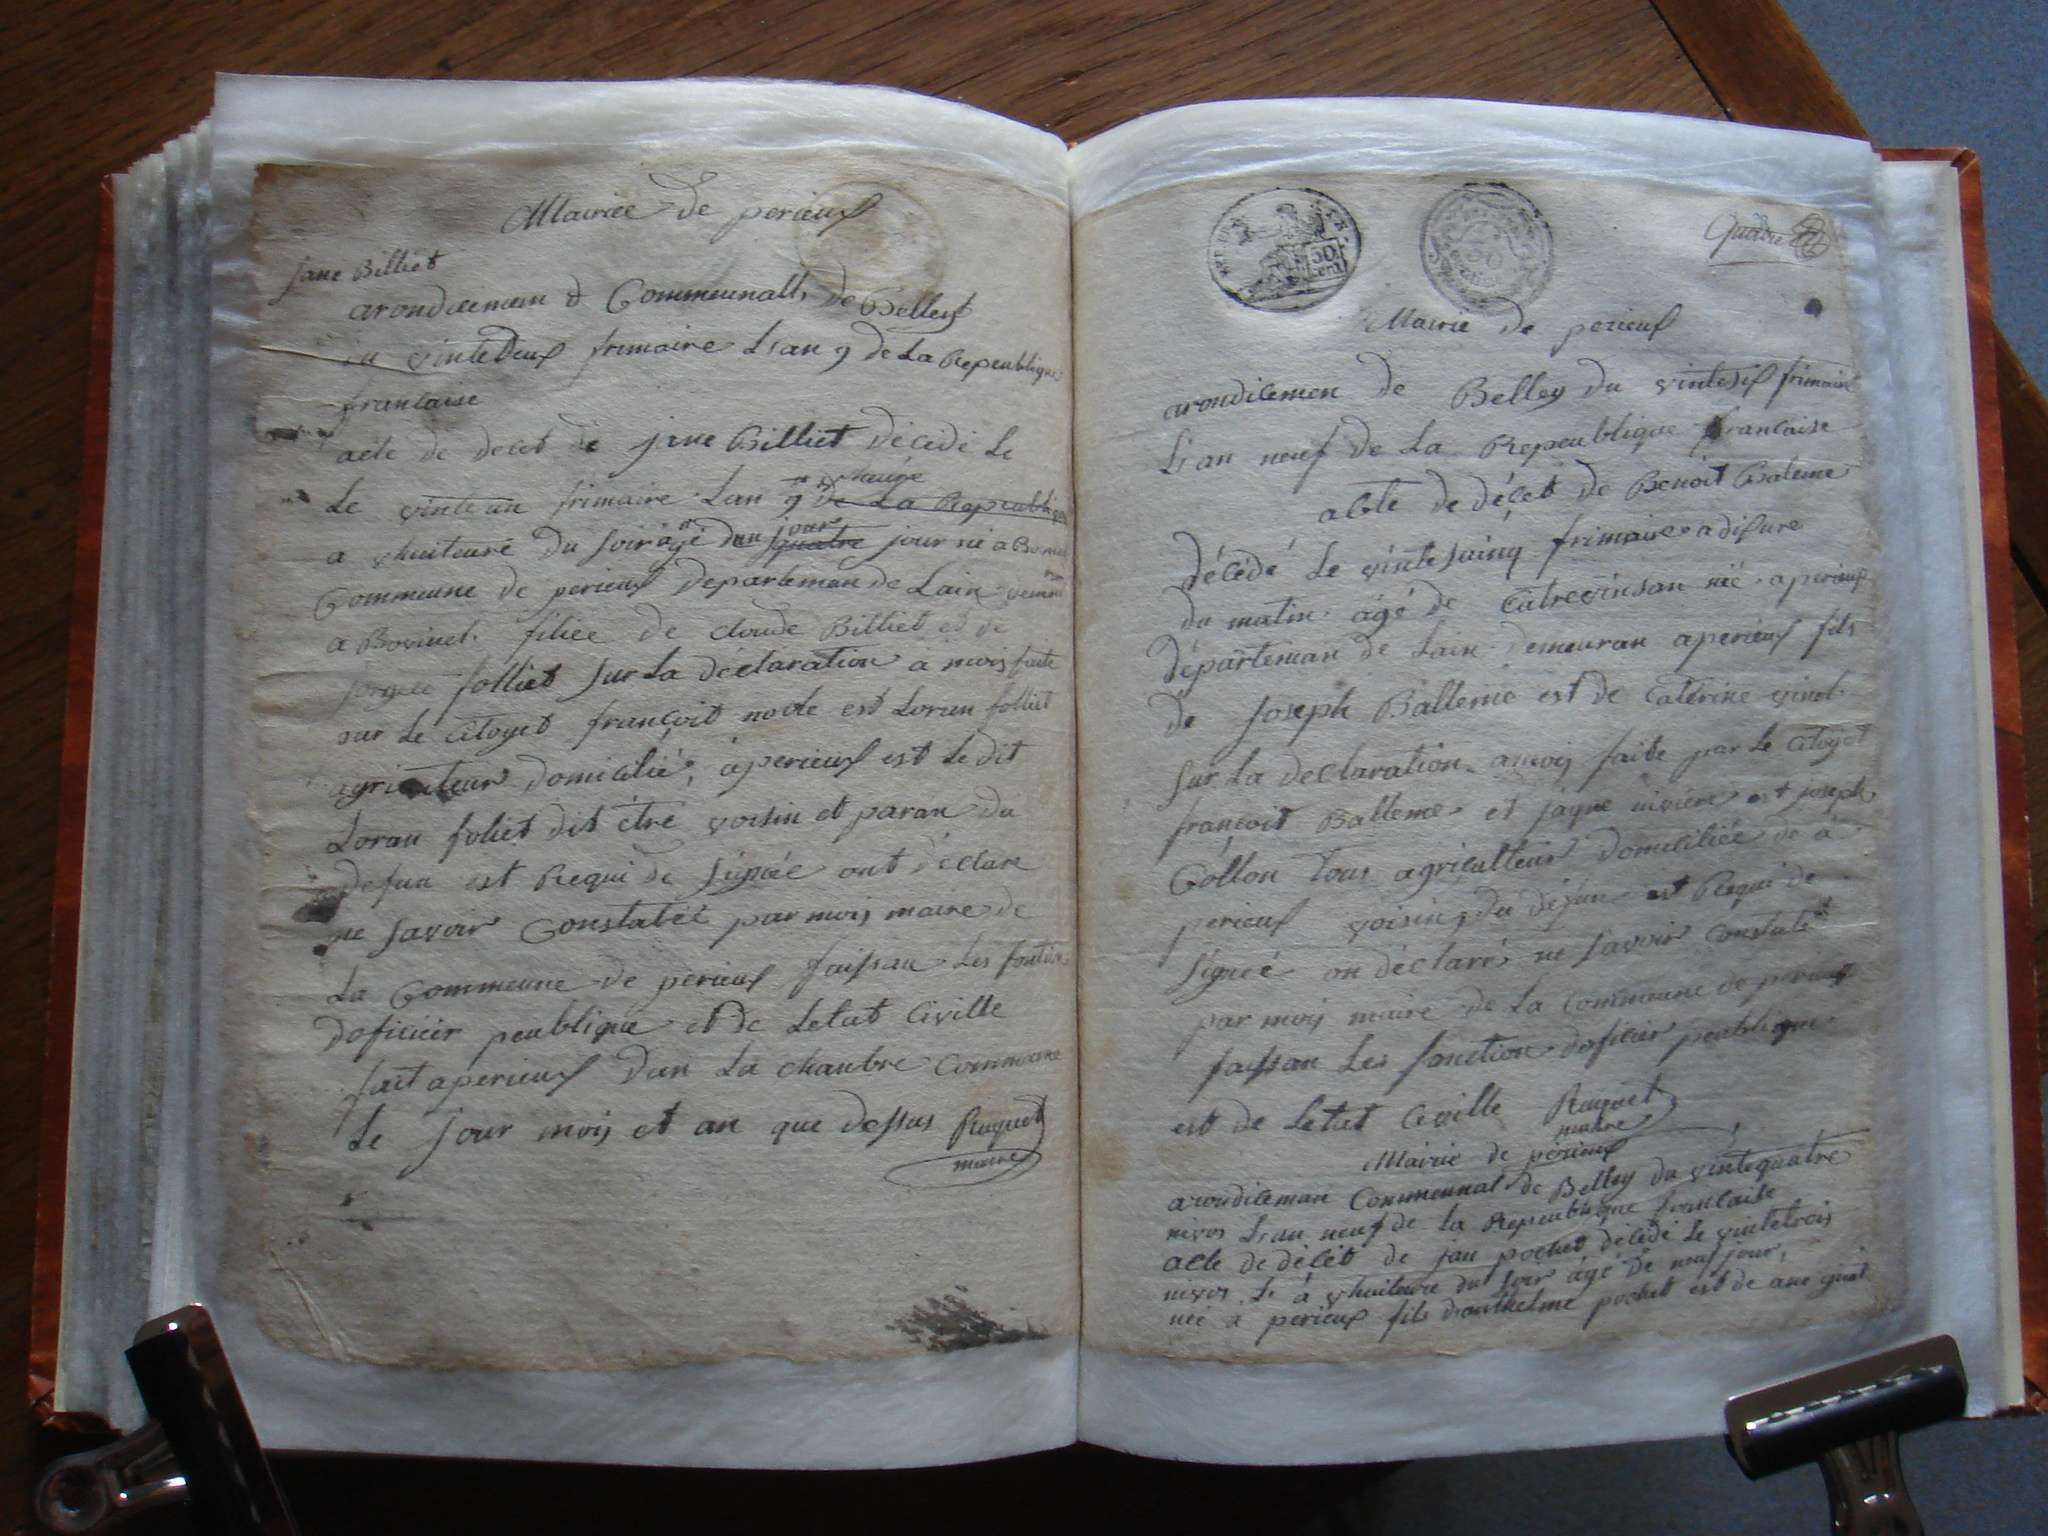 Mairiee de perieux
jane Billiet
arondicemen & Commeunalle de Belley
du vintedeux frimaire L'an 9 de La Repeublique
francaise
acte de decet de jane Billiet décédé Le
Le vinte un frimaire Lan 9 de La Republique
heure
a vhuiteure du soir agé dun jour quatre jour né a Bovinel
Commeune de perieux departeman de Lain
a Bovinel filiee de cloude Billiet et de
folliet sur La déclaration a mois faite
par Le Citoyet françoit et Loran folliet
agriculteur domicilié à perieux est Le dit
Loran foliet dit être voisin et paran du
defun est Requi de signée ont déclaré
ne savoir Constatéé par mois maire de
La Commeune de perieux faissan Les fontion
doficiér peublique et de Letat Civille
fait aperieux dan La chanbre Commune
Le jour mois et an que dessus Ruguet
maire
50 cent
Quatre
Mairie de perieux
arondicemen de Belley du vintesix frimaire
L'an neuf de La Repeublique francaise
acte de décet de Benoit Baleme
décédé Le vintesainq frimaire a disure
du matin agé de Catrevinsan néé a perieux
départeman de Lain demeuran a perieux fils
de Joseph Balleme est de Catérine vinel
sur La declaration a mois faite par Le Citoyet
françoit Balleme et est joseph
Collon tous agriculteur domiciliée de à
perieux voisin du défun est Requi de
signéé on déclaré ne savoir Constaté
par mois maire de La Commeune de perieux
faissan Les fonction doficier peublique
est de Letat Civille Ruguet
maire
Mairie de perieux
arondiceman Commeunal de Belley du vintequatre
nivos L'an neuf de La Repeublique francaise
acte de décét de jan pochet décédé Le vintetrois
nivos Le à vhuiteure du soir agé de neuf jour
néé a perieux fils d'anthelme pochet est de ane